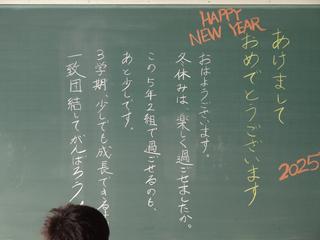 HAPPY
NEW YEAR
あけまして
おめでとうございます
2025
おはようございます。
冬休みは、楽しく過ごせましたか。
この5年2組で過ごせるのも、
あと少しです。
3学期、少しでも成長できるよ
一致団結してがんばろう!